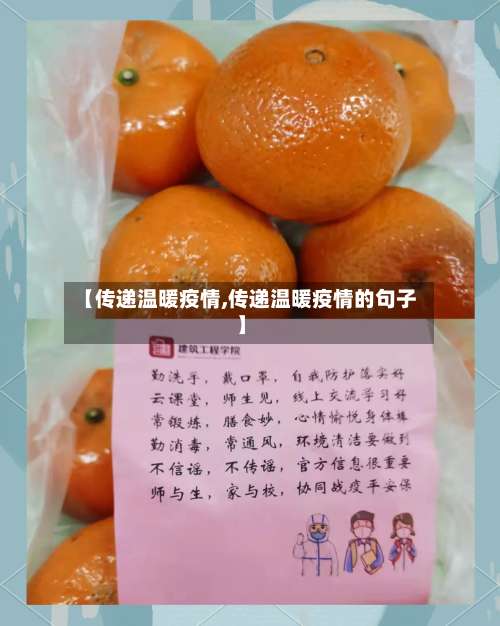 【传递温暖疫情,传递温暖疫情的句子
】
建筑工程学院
勤洗手，戴口罩，自我防护落实好
云课堂，师生见，线上交流学习好
常锻炼，膳食妙，心情愉悦身体棒
勤消毒，常通风，环境清洁要做到
不信谣，不传谣，官方信息很重要
师与生，家与校，协同战疫平安保